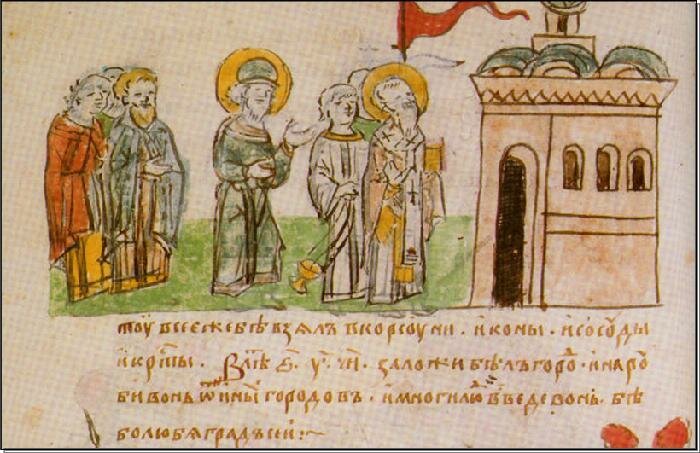 тоу все еже бѣ взялъ в корсоуни . иконы . и сосоуды
и крⷭ҇ты . В лѣⷮ ҂ѕ҃ . у҃ . ч҃ѳ . заложи бѣлъгороⷣ . и наро
би вонь ѿ иныⷯ городовъ . и много люⷣи введе вонь . бѣ
бо любя градъ сеи :~